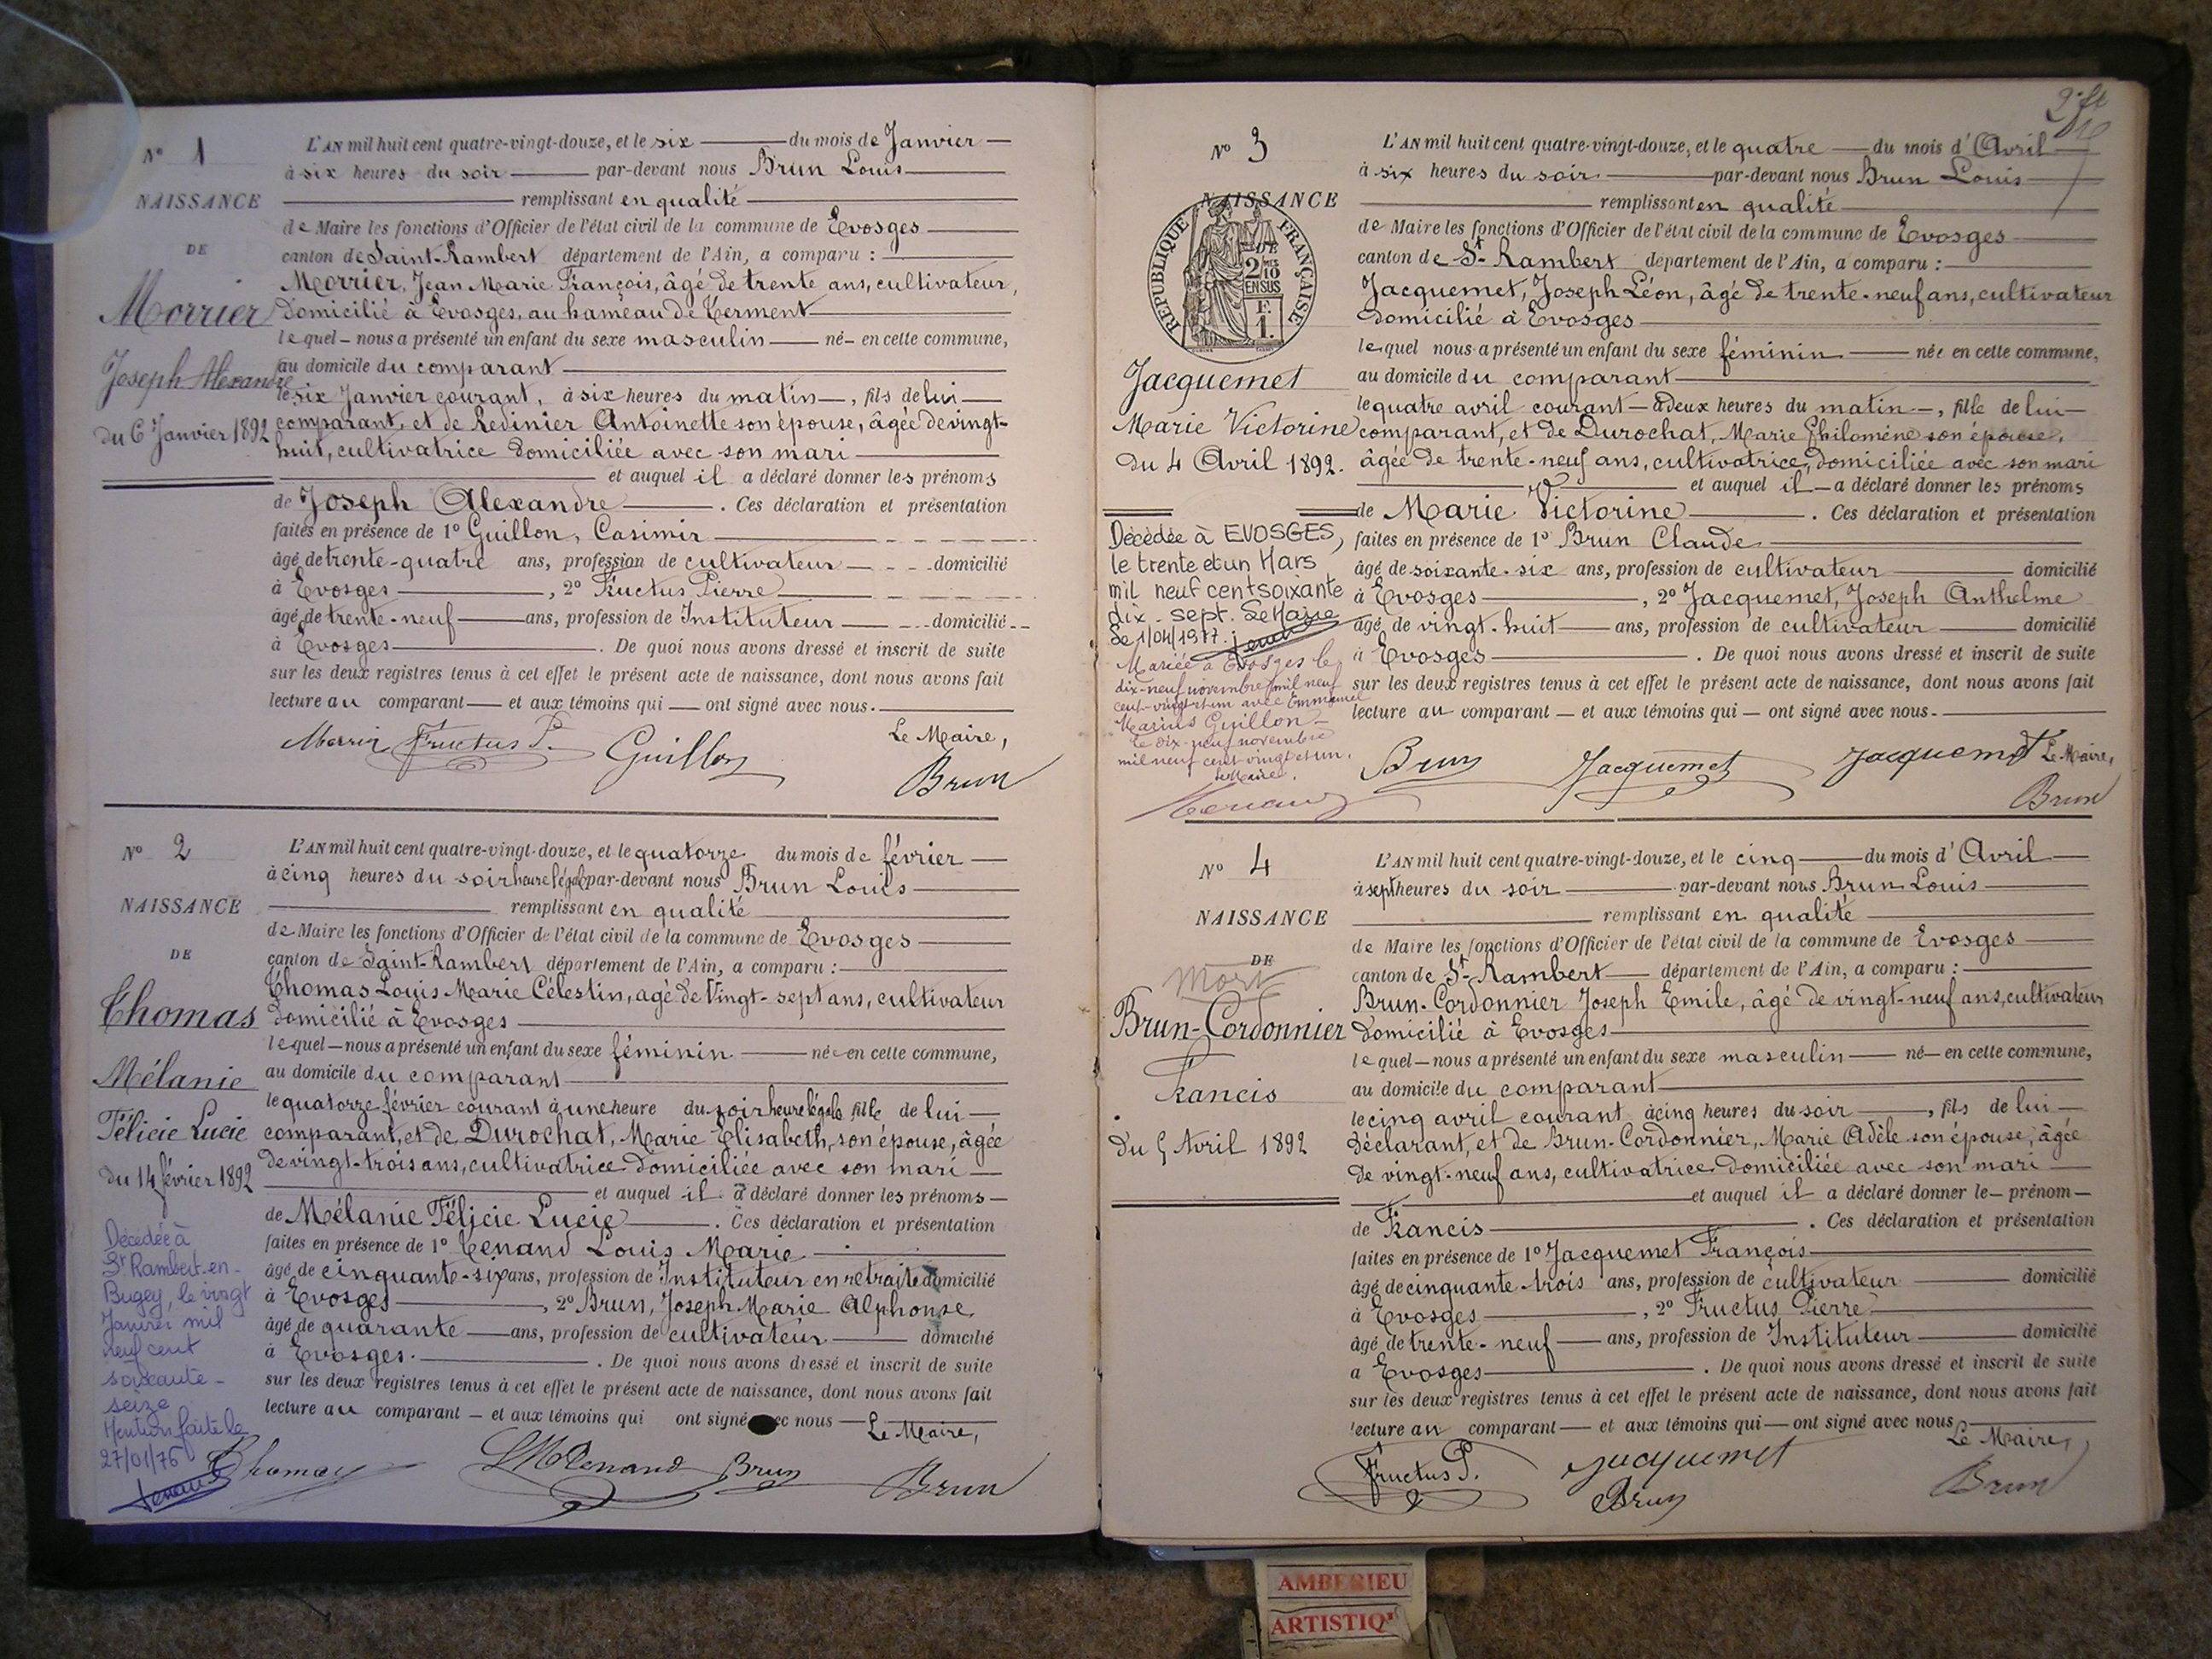 Nº 1
NAISSANCE
DE
Morrier
Joseph Alexandre
du 6 Janvier 1892
L'AN mil huit cent quatre-vingt-douze, et le six du mois de Janvier
à six heures du soir par-devant nous Brun Louis
remplissant en qualité
de Maire les fonctions d'Officier de l'état civil de la commune de Evosges
canton de Saint-Rambert département de l'Ain, a comparu :
Morrier, Jean Marie François, âgé de trente ans, cultivateur,
domicilié à Evosges, au hameau de
lequel nous a présenté un enfant du sexe masculin né en cette commune,
au domicile du comparant
le six Janvier courant, à six heures du matin, fils de lui
comparant, et de Redinier Antoinette son épouse, âgée de vingt-
huit, cultivatrice domiciliée avec son mari
et auquel il a déclaré donner les prénoms
de Joseph Alexandre. Ces déclaration et présentation
faites en présence de 1º Guillon, Casimir
âgé de trente-quatre ans, profession de cultivateur domicilié
à Evosges, 2º Fructus Pierre
âgé de trente-neuf ans, profession de Instituteur domicilié
à Evosges. De quoi nous avons dressé et inscrit de suite
sur les deux registres tenus à cet effet le présent acte de naissance, dont nous avons fait
lecture au comparant et aux témoins qui ont signé avec nous.
Le Maire,
Morrier Fructus P. Guillon Brun
Nº 2
NAISSANCE
DE
Thomas
Mélanie
Félicie Lucie
du 14 février 1892
Décédée à
St Rambert-en-
Bugey, le vingt
Janvier mil
neuf cent
soixante-
seize
Mention faite le
27/01/76
L'AN mil huit cent quatre-vingt-douze, et le quatorze du mois de février
à cinq heures du soir heure légale par-devant nous Brun Louis
remplissant en qualité
de Maire les fonctions d'Officier de l'état civil de la commune de Evosges
canton de Saint-Rambert département de l'Ain, a comparu :
Thomas Louis Marie Célestin, agé de Vingt-sept ans, cultivateur
domicilié à Evosges
lequel nous a présenté un enfant du sexe féminin née en cette commune,
au domicile du comparant
le quatorze février courant à une heure du soir heure légale fille de lui
comparant, et de Durochat, Marie Elisabeth, son épouse, âgée
de vingt-trois ans, cultivatrice domiciliée avec son mari
et auquel il a déclaré donner les prénoms
de Mélanie Félicie Lucie. Ces déclaration et présentation
faites en présence de 1º Tenand Louis Marie
âgé de cinquante-six ans, profession de Instituteur en retraite domicilié
à Evosges, 2º Brun, Joseph Marie Alphonse
âgé de quarante ans, profession de cultivateur domicilié
à Evosges. De quoi nous avons dressé et inscrit de suite
sur les deux registres tenus à cet effet le présent acte de naissance, dont nous avons fait
lecture au comparant et aux témoins qui ont signé avec nous Le Maire,
Thomas Tenand Brun Brun
Nº 3
NAISSANCE
DE
REPUBLIQUE FRANÇAISE
2/10 EN SUS
F.
1.
Jacquemet
Marie Victorine
du 4 Avril 1892.
Décédée à EVOSGES,
le trente et un Mars
mil neuf cent soixante
dix-sept. Le Maire
Le 1/04/1977.
Mariée à Evosges le
dix-neuf novembre mil neuf
cent-vingt et un avec Emmanuel
Marius Guillon
Le dix-neuf novembre
mil neuf cent vingt et un.
Le Maire.
L'AN mil huit cent quatre-vingt-douze, et le quatre du mois d'Avril
à six heures du soir par-devant nous Brun Louis
remplissant en qualité
de Maire les fonctions d'Officier de l'état civil de la commune de Evosges
canton de St-Rambert département de l'Ain, a comparu :
Jacquemet, Joseph Léon, âgé de trente-neuf ans, cultivateur
domicilié à Evosges
lequel nous a présenté un enfant du sexe féminin née en cette commune,
au domicile du comparant
le quatre avril courant à deux heures du matin, fille de lui
comparant, et de Durochat, Marie Philomène son épouse,
âgée de trente-neuf ans, cultivatrice, domiciliée avec son mari
et auquel il a déclaré donner les prénoms
de Marie Victorine. Ces déclaration et présentation
faites en présence de 1º Brun Claude
âgé de soixante-six ans, profession de cultivateur domicilié
à Evosges, 2º Jacquemet, Joseph Anthelme
âgé de vingt-huit ans, profession de cultivateur domicilié
à Evosges. De quoi nous avons dressé et inscrit de suite
sur les deux registres tenus à cet effet le présent acte de naissance, dont nous avons fait
lecture au comparant et aux témoins qui ont signé avec nous.
Brun Jacquemet Jacquemet Le Maire,
Brun
Nº 4
NAISSANCE
DE
Mort
Brun-Cordonnier
Francis
du 5 Avril 1892
L'AN mil huit cent quatre-vingt-douze, et le cinq du mois d'Avril
à sept heures du soir par-devant nous Brun Louis
remplissant en qualité
de Maire les fonctions d'Officier de l'état civil de la commune de Evosges
canton de St-Rambert département de l'Ain, a comparu :
Brun-Cordonnier Joseph Emile, âgé de vingt-neuf ans, cultivateur
domicilié à Evosges
lequel nous a présenté un enfant du sexe masculin né en cette commune,
au domicile du comparant
le cinq avril courant à cinq heures du soir, fils de lui
déclarant, et de Brun-Cordonnier, Marie Adèle son épouse, âgée
de vingt-neuf ans, cultivatrice domiciliée avec son mari
et auquel il a déclaré donner le prénom
de Francis. Ces déclaration et présentation
faites en présence de 1º Jacquemet François
âgé de cinquante-trois ans, profession de cultivateur domicilié
à Evosges, 2º Fructus Pierre
âgé de trente-neuf ans, profession de Instituteur domicilié
à Evosges. De quoi nous avons dressé et inscrit de suite
sur les deux registres tenus à cet effet le présent acte de naissance, dont nous avons fait
lecture au comparant et aux témoins qui ont signé avec nous
Le Maire,
Fructus P. Jacquemet
Brun Brun
AMBERIEU
ARTISTIQ